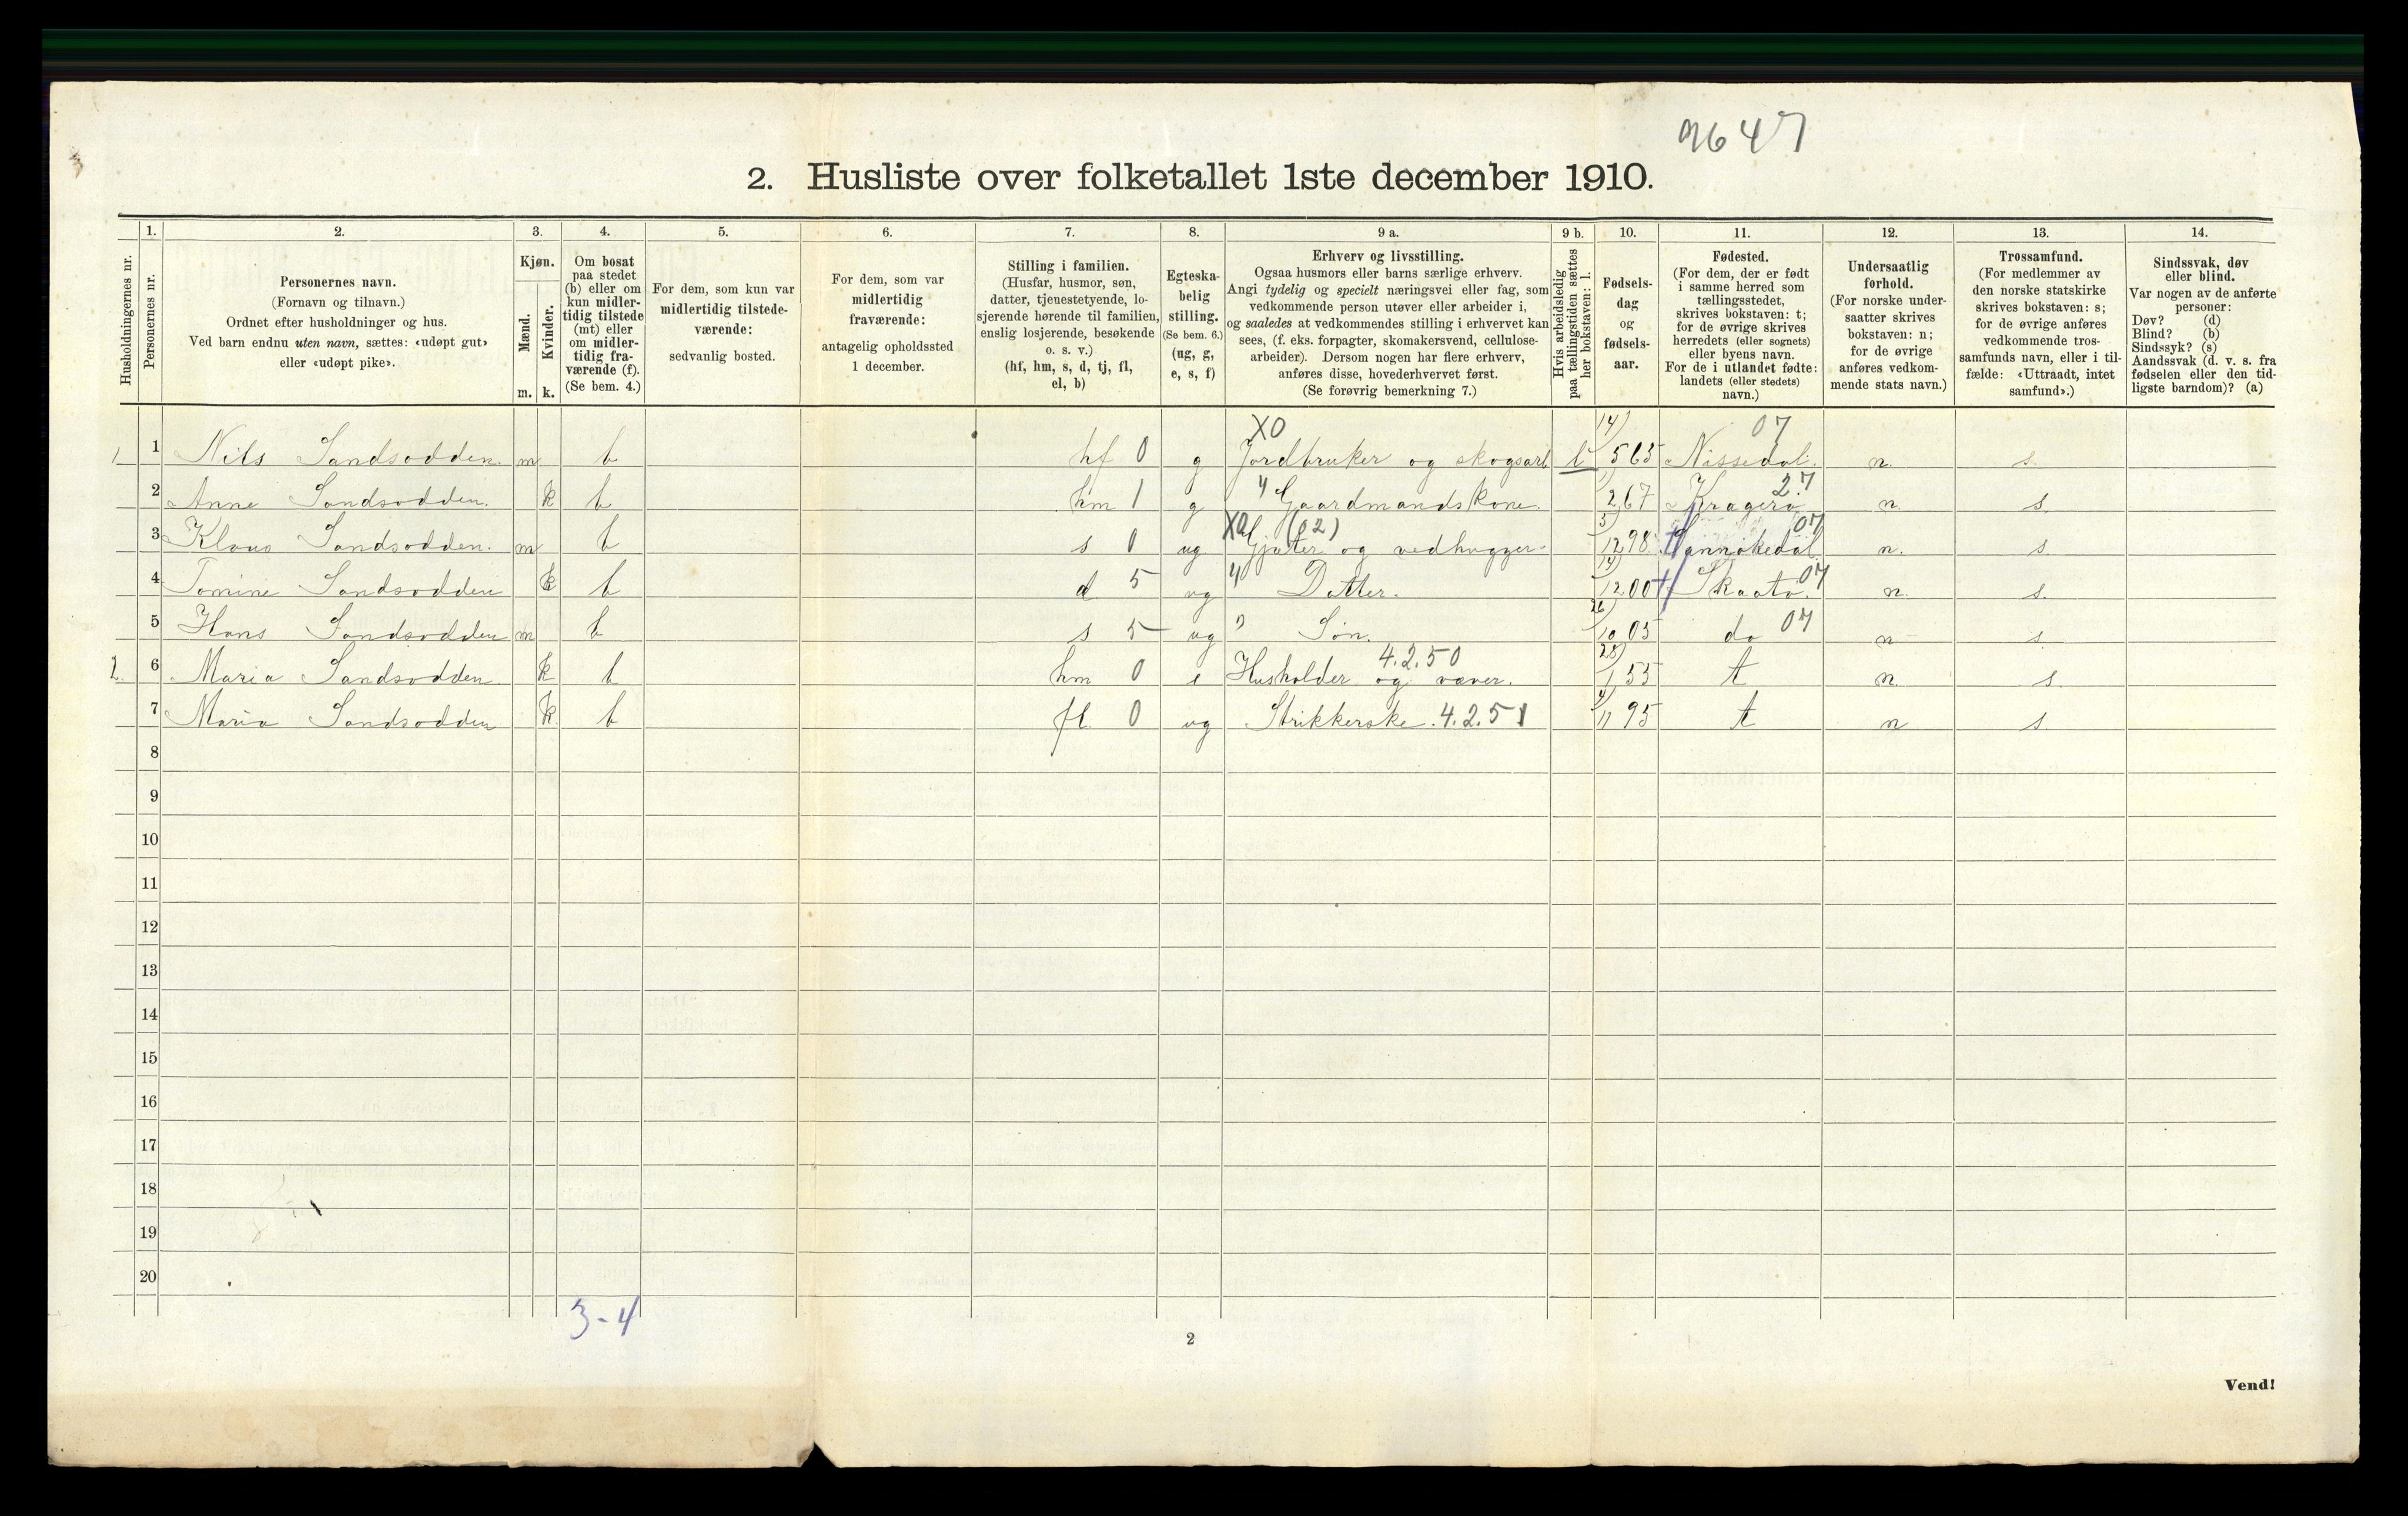 9647
2. Husliste over folketallet 1ste december 1910.
Husholdningernes nr.
1. Personernes nr.
2. Personernes navn.
(Fornavn og tilnavn.)
Ordnet efter husholdninger og hus.
Ved barn endnu uten navn, sættes: «udøpt gut»
eller «udøpt pike».
3. Kjøn.
Mænd. m.
Kvinder. k.
4. Om bosat
paa stedet
(b) eller om
kun midler-
tidig tilstede
(mt) eller
om midler-
tidig fra-
værende (f).
(Se bem. 4.)
5. For dem, som kun var
midlertidig tilstede-
værende:
sedvanlig bosted.
6. For dem, som var
midlertidig
fraværende:
antagelig opholdssted
1 december.
7. Stilling i familien.
(Husfar, husmor, søn,
datter, tjenestetyende, lo-
sjerende hørende til familien,
enslig losjerende, besøkende
o. s. v.)
(hf, hm, s, d, tj, fl,
el, b)
8. Egteska-
belig
stilling.
(Se bem. 6.)
(ug, g,
e, s, f)
9 a. Erhverv og livsstilling.
Ogsaa husmors eller barns særlige erhverv.
Angi tydelig og specielt næringsvei eller fag, som
vedkommende person utøver eller arbeider i,
og saaledes at vedkommendes stilling i erhvervet kan
sees, (f. eks. forpagter, skomakersvend, cellulose-
arbeider). Dersom nogen har flere erhverv,
anføres disse, hovederhvervet først.
(Se forøvrig bemerkning 7.)
9 b. Hvis arbeidsledig
paa tællingstiden sættes
her bokstaven: l.
10. Fødsels-
dag
og
fødsels-
aar.
11. Fødested.
(For dem, der er født
i samme herred som
tællingsstedet,
skrives bokstaven: t;
for de øvrige skrives
herredets (eller sognets)
eller byens navn.
For de i utlandet fødte:
landets (eller stedets)
navn.)
12. Undersaatlig
forhold.
(For norske under-
saatter skrives
bokstaven: n;
for de øvrige
anføres vedkom-
mende stats navn.)
13. Trossamfund.
(For medlemmer av
den norske statskirke
skrives bokstaven: s;
for de øvrige anføres
vedkommende tros-
samfunds navn, eller i til-
fælde: «Uttraadt, intet
samfund».)
14. Sindssvak, døv
eller blind.
Var nogen av de anførte
personer:
Døv? (d)
Blind? (b)
Sindssyk? (s)
Aandssvak (d. v. s. fra
fødselen eller den tid-
ligste barndom)? (a)
XO 14) 07
1 1 Nils Sandsodden. m b hf 0 g Jordbruker og skogsarb l 5 65 Nissedal. n. s.
2 Anne Sandsodden. k b hm 1 g " Gaardmandskone. 2 67 Kragerø 27 n. s.
3 Klaus Sandsodden. m b s 0 ug XO (02) Gjæter og vedhugger. 5) 12 98 Sannøkedal 07 n. s.
4 Tomine Sandsodden k b d 5 ug " Datter. 14) 12 00 Skaatø. 07 n. s.
5 Hans Sandsodden m b s 5 ug " Søn. 26) 10 05 do 07 n s
2. 6 Maria Sandsodden k b hm 0 e Husholder og væver. 4.2.50 28) 1 55 t n. s.
7 Maria Sandsodden k b fl. 0 ug Strikkerske. 4.2.51 11 95 t n s.
8
9
10
11
12
13
14
15
16
17
18
19
20
3-4
2
Vend!